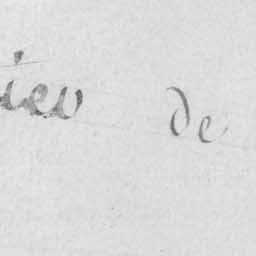 ier de